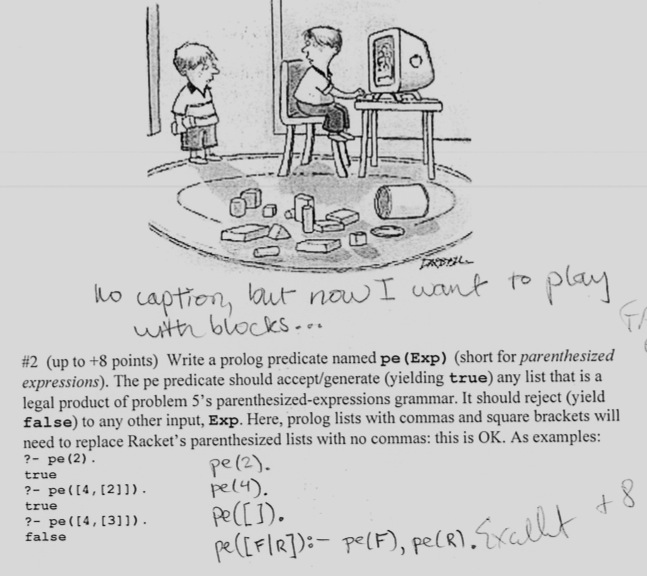 No caption, but now I want to play
with blocks...
#2 (up to +8 points) Write a prolog predicate named pe(Exp) (short for parenthesized
expressions). The pe predicate should accept/generate (yielding true) any list that is a
legal product of problem 5's parenthesized-expressions grammar. It should reject (yield
false) to any other input, Exp. Here, prolog lists with commas and square brackets will
need to replace Racket's parenthesized lists with no commas: this is OK. As examples:
?- pe(2).
true
?- pe([4,[2]]).
true
?- pe([4,[3]]).
false
pe(2).
pe(4).
pe([]).
pe([F|R]):- pe(F), pe(R).
+8